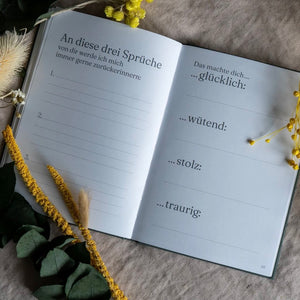 An diese drei Sprüche
von dir werde ich mich
immer gerne zurückerinnern:
1.
2.
Das machte dich...
...glücklich:
...wütend:
...stolz:
...traurig: